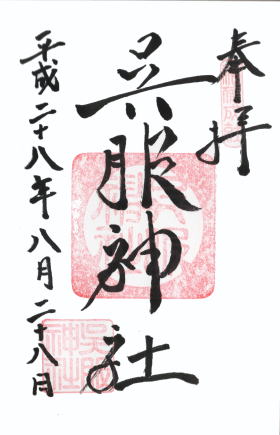 奉拝
呉服神社
平成二十八年八月二十八日
呉服
神社